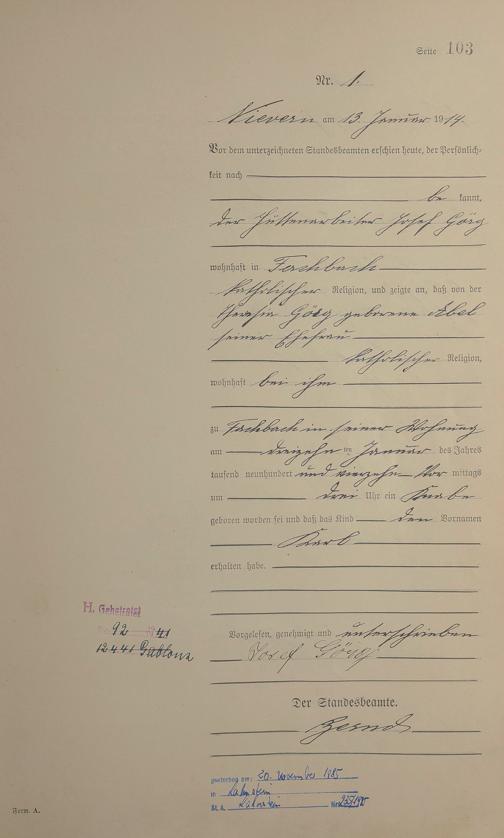 Seite 103
Nr. 1.
Nievern am 13. Januar 1914.
Vor dem unterzeichneten Standesbeamten erschien heute, der Persönlich-
keit nach
be kannt,
der Hüttenarbeiter Josef Görg
wohnhaft in Fachbach
katholischer Religion, und zeigte an, daß von der
Theresia Görg geborene Abel
seiner Ehefrau
katholischer Religion,
wohnhaft bei ihm
zu Fachbach in seiner Wohnung
am dreizehnten Januar des Jahres
tausend neunhundert und vierzehn Vor mittags
um drei Uhr ein Knabe
geboren worden sei und daß das Kind den Vornamen
Karl
erhalten habe.
H. Geheiratet
92 41
12 4 41 Gablonz
Vorgelesen, genehmigt und unterschrieben
Josef Görg
Der Standesbeamte.
gestorben am: 30. November 1985
in Lahnstein
St. A. Lahnstein Nr.
Form. A.